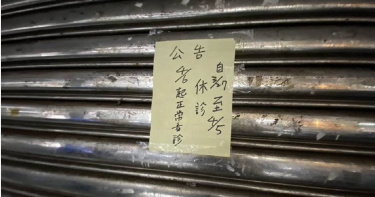 公告
自3/27至4/5
休診
4/6起正常看診